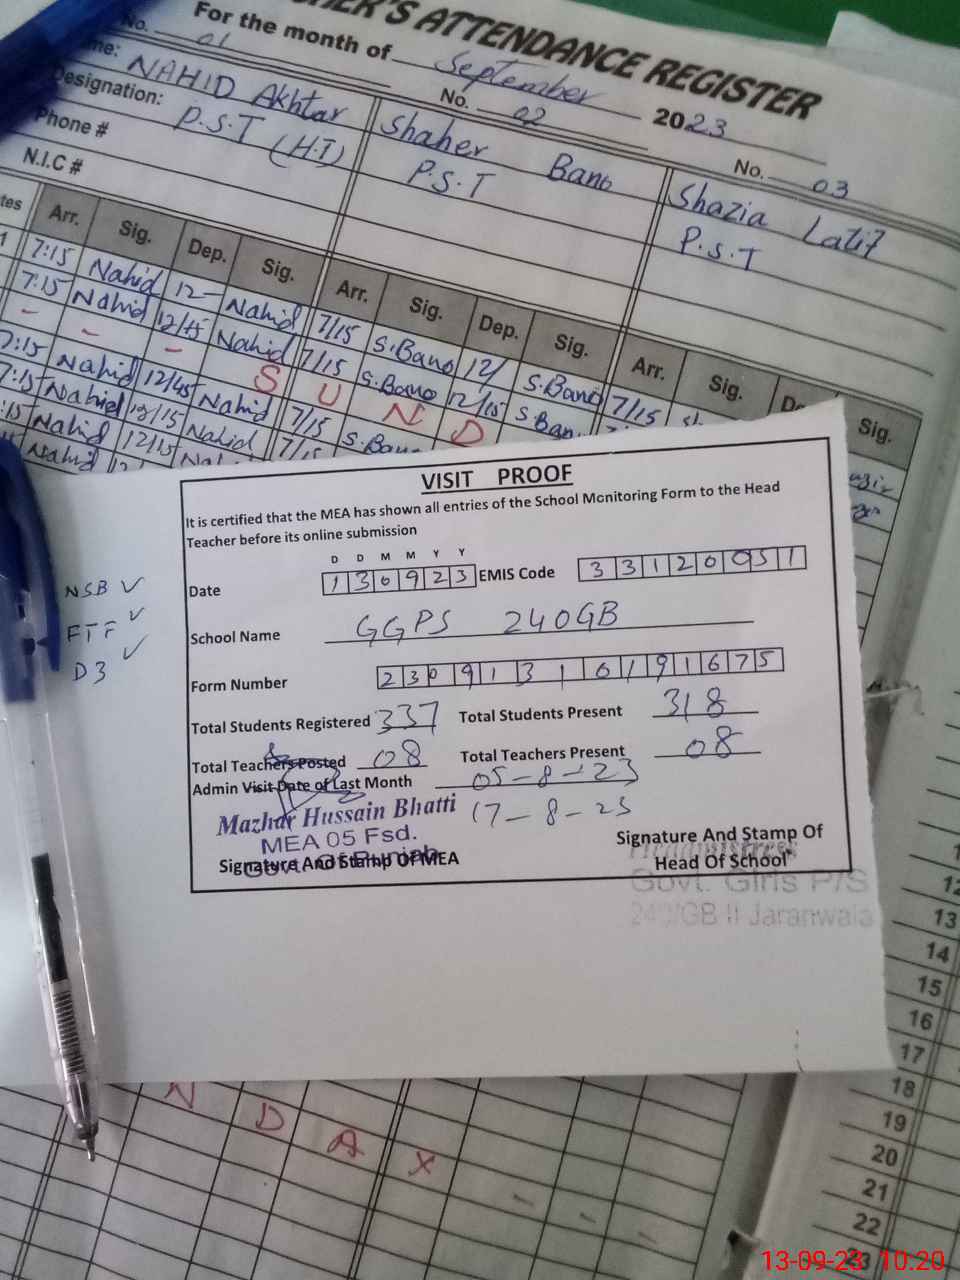 TEACHER'S ATTENDANCE REGISTER
For the month of September 2023
No. 01 No. 02 No. 03
NAHID Akhtar Shaher Bano Shazia Latif
Designation: P.S.T (H.T) P.S.T P.S.T
Phone #
N.I.C #
Arr. Sig. Dep. Sig. Arr. Sig. Dep. Sig. Arr. Sig. Sig.
1 7:15 Nahid 12- Nahid 7/15 S.Bano 12/ S.Bano 7/15
7:15 Nahid 12/15 Nahid 7/15 S.Bano 12/15 S.Ban
- - - S U N D
7:15 Nahid 12/45 Nahid 7/15 S.Bano
7:15 Nahid 12/15 Nahid 7/15
:15 Nahid 12/15
Nahid
VISIT PROOF
It is certified that the MEA has shown all entries of the School Monitoring Form to the Head
Teacher before its online submission
D D M M Y Y
Date 130923 EMIS Code 33120051
NSB ✓
School Name GGPS 240GB
FTF ✓
D3 ✓
Form Number 23091310191675
Total Students Registered 337 Total Students Present 318
Total Teachers Posted 08 Total Teachers Present 08
Admin Visit Date of Last Month 05-8-23
17-8-23
Mazhar Hussain Bhatti
MEA 05 Fsd.
Govt. Of Punjab
Signature And Stamp Of MEA
Signature And Stamp Of
Head Of School
Headmistress
Govt. Girls P/S
240/GB II Jaranwala
12
13
14
15
16
17
18
19
20
21
22
23
N D A X
13-09-23 10.20